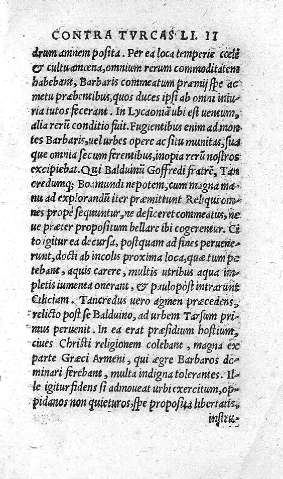 CONTRA TVRCAS LI. II
drum amnem posita. Per ea loca temperie cœli
& cultu amœna, omnium rerum commoditatem
habebant, Barbaris commeatum præmij spe ac
metu præbentibus, quos duces ipsi ab omni iniu⸗
ria tutos fecerant. In Lycaoniã ubi est uentum,
alia rerũ conditio fuit. Fugientibus enim ad mon⸗
tes Barbaris, uel urbes opere ac situ munitas, sua
que omnia secum ferentibus, inopia rerũ nostros
excipiebat. Qui Balduinũ Goffredi fratrẽ, Tan
credumq; Boamundi nepotem, cum magna ma⸗
nu ad explorandũ iter præmittunt Reliqui om⸗
nes propè sequuntur, ne deficeret commeatus, ne
ue præter propositum bellare ibi cogerentur. Ci
to igitur ea decursa, postquam ad fines peruene⸗
runt, docti ab incolis proxima loca, quæ tum pe
tebant, aquis carere, multis utribus aqua im⸗
pletis iumenta onerant, & paulopòst intrarunt
Ciliciam. Tancredus uero agmen præcedens,
relicto post se Balduino, ad urbem Tarsum pri⸗
mus peruenit. In ea erat præsidium hostium,
ciues Christi religionem colebant, magna ex
parte Græci Armeni, qui ægre Barbaros do⸗
minari ferebant, multa indigna tolerantes. Il⸗
le igitur fidens si admoueat urbi exercitum, op⸗
pidanos non quieturos, spe proposita libertatis,
instru⸗